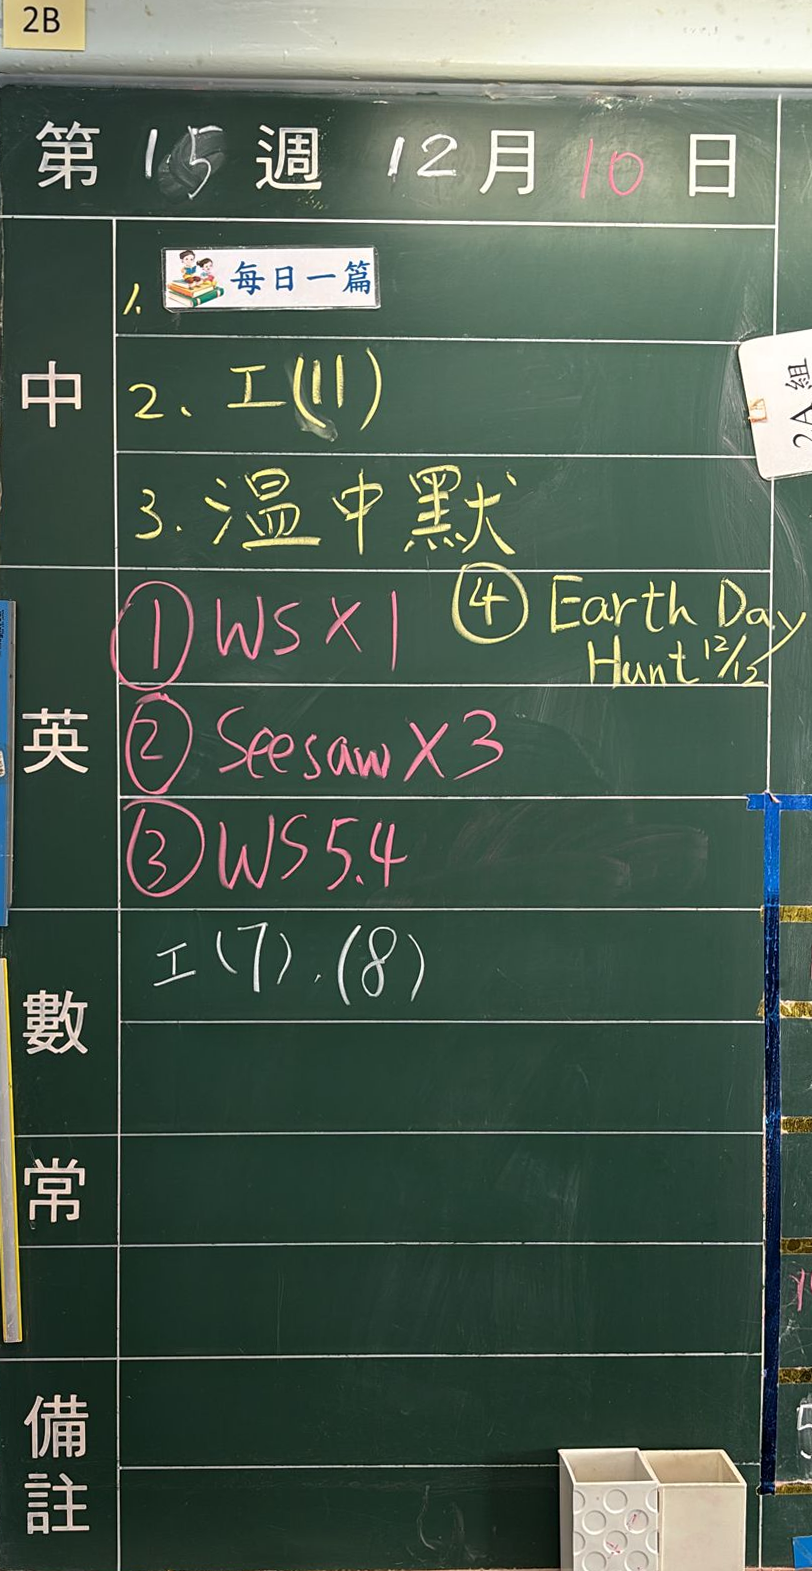 2B
第 15 週 12 月 10 日
中
1. 每日一篇
2、工(11)
3. 溫中默
英
① WS X 1
④ Earth Day
Hunt 12/12
② Seesaw X 3
③ WS 5.4
數
工(7)、(8)
常
備註
2A 組